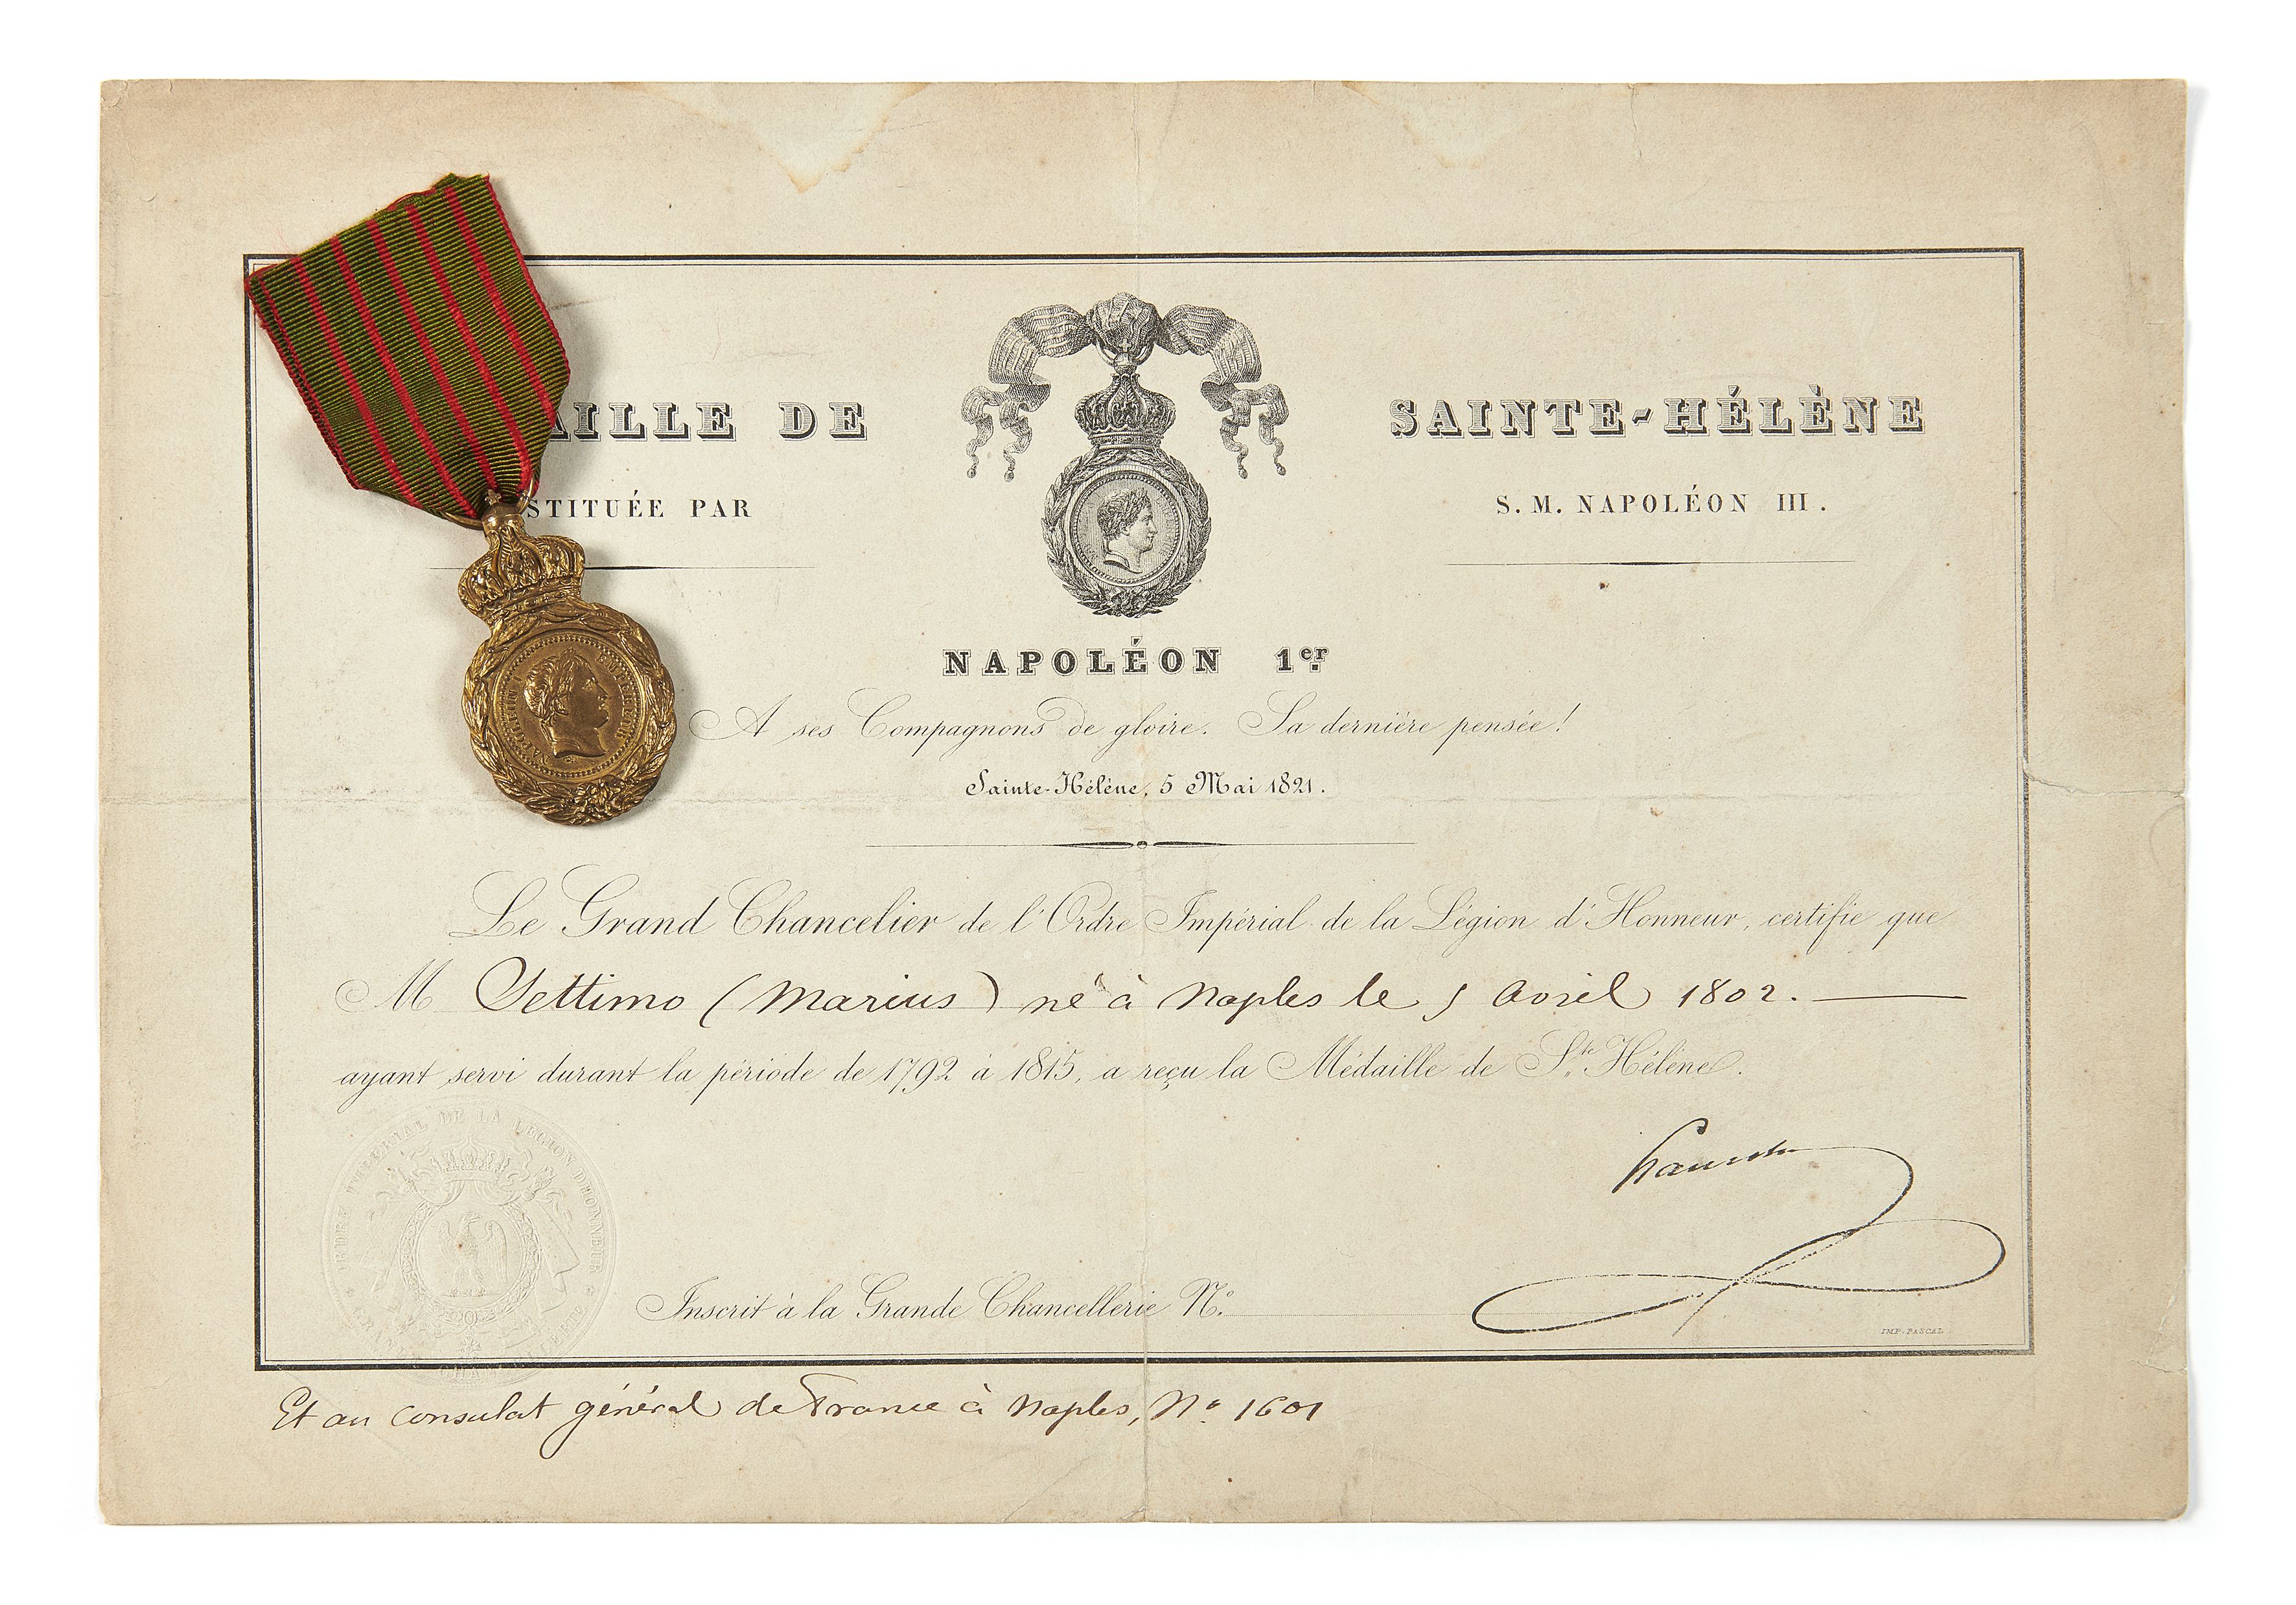 AILLE DE SAINTE-HÉLÈNE
STITUÉE PAR S. M. NAPOLÉON III.
NAPOLÉON 1er
A ses Compagnons de gloire. Sa dernière pensée!
Sainte-Hélène, 5 Mai 1821.
Le Grand Chancelier de l'Ordre Impérial de la Légion d'Honneur, certifie que
M Settimo (Marius) né à Naples le 5 Avril 1802.
ayant servi durant la période de 1792 à 1815, a reçu la Médaille de Ste Hélène.
ORDRE IMPÉRIAL DE LA LÉGION D'HONNEUR
Inscrit à la Grande Chancellerie No.
IMP. PASCAL
Et au consulat général de France à Naples, No 1601
NAPOLEON I EMPEREUR